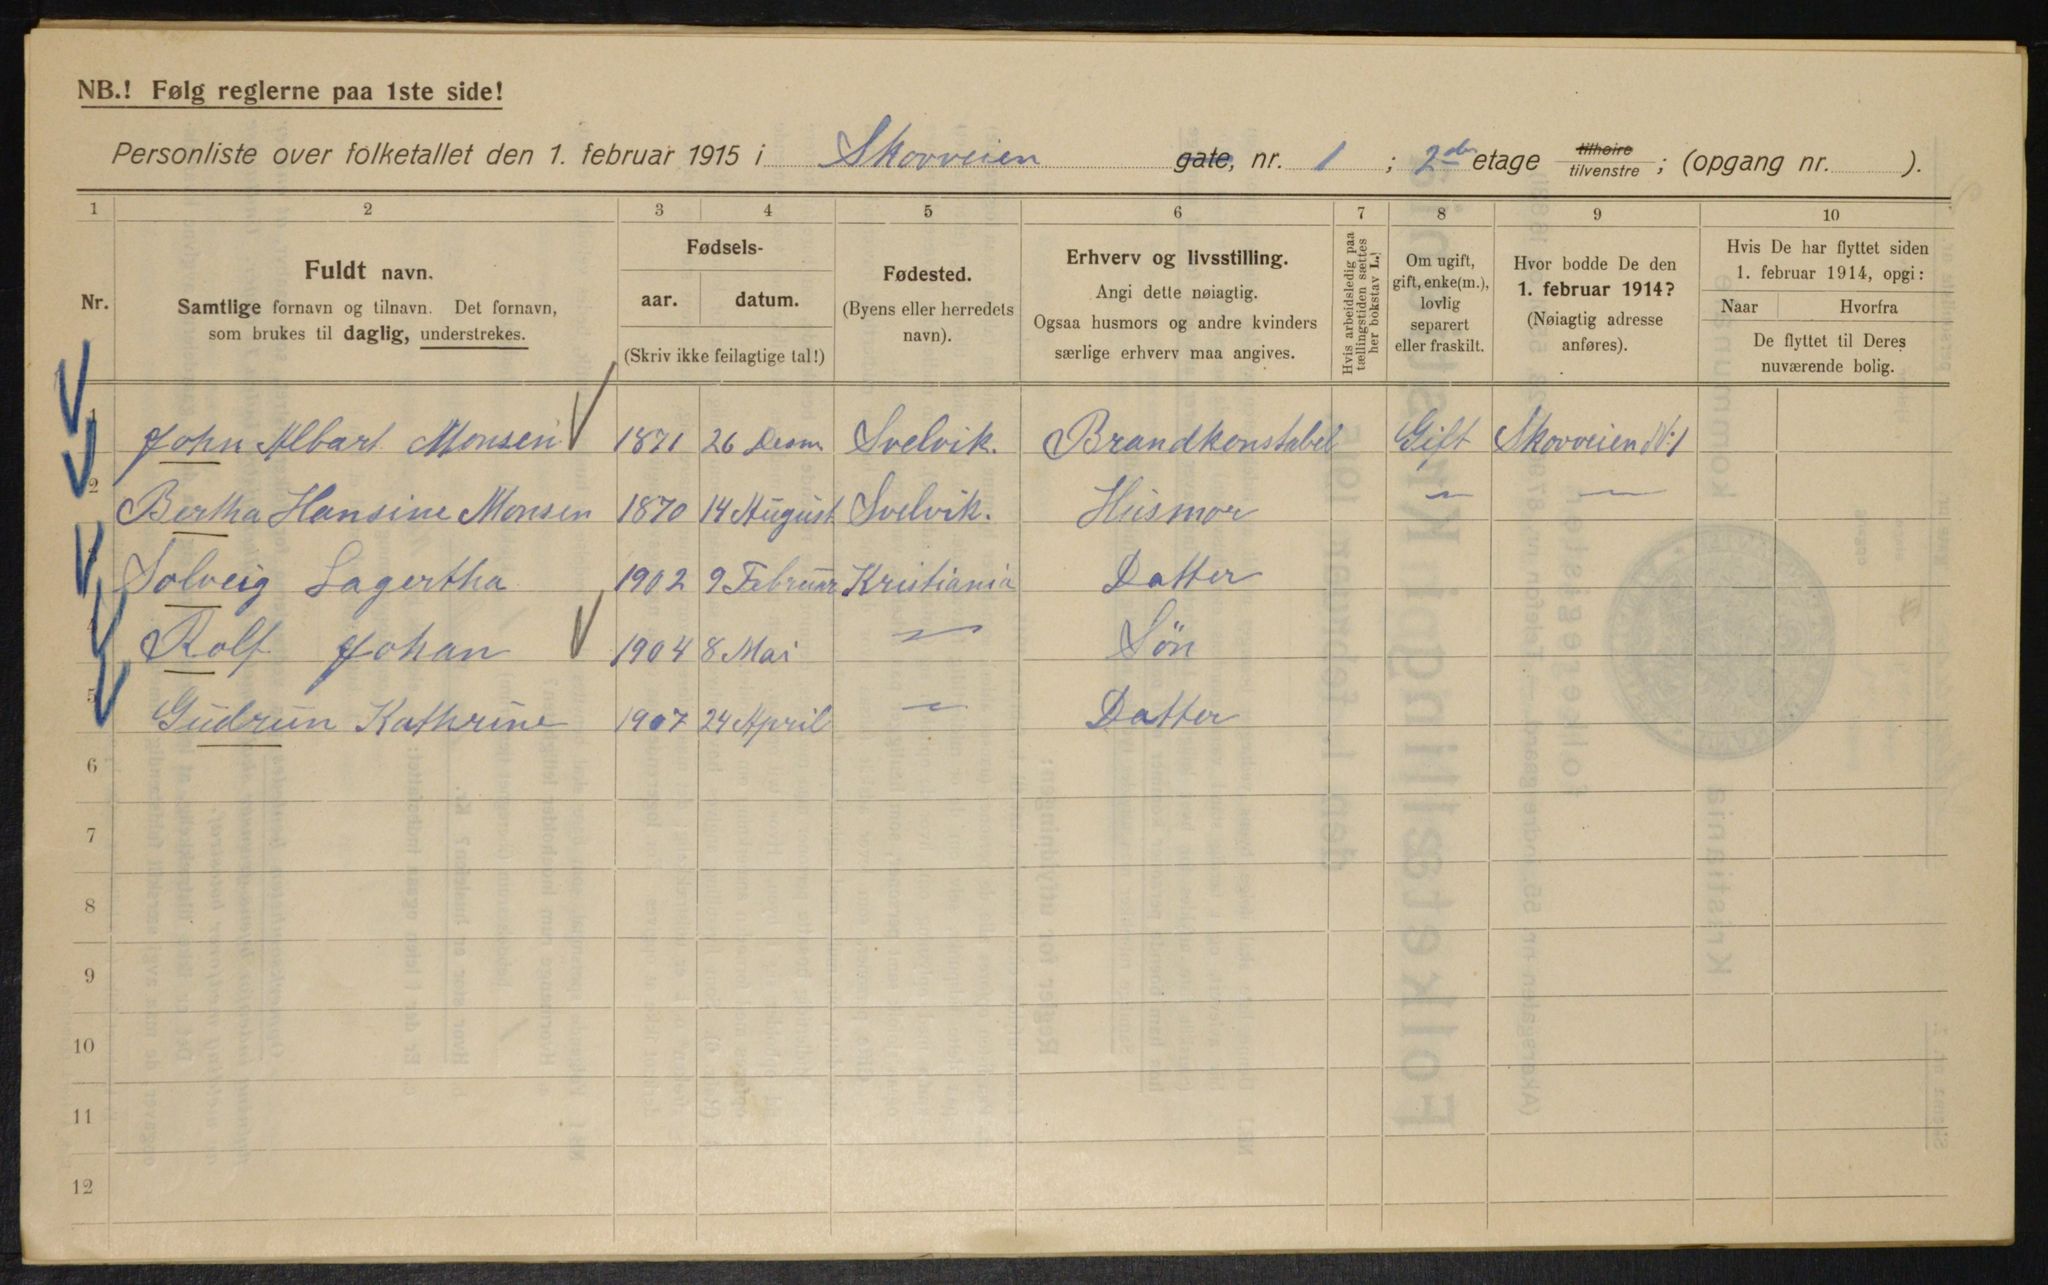 NB.! Følg reglerne paa 1ste side!
Personliste over folketallet den 1. februar 1915 i Skovveien gate, nr. 1 ; 2den etage tilhøire tilvenstre ; (opgang nr. ).
1 2 3 4 5 6 7 8 9 10
Nr.
Fuldt navn.
Samtlige fornavn og tilnavn. Det fornavn,
som brukes til daglig, understrekes.
Fødsels-
aar. datum.
(Skriv ikke feilagtige tal!)
Fødested.
(Byens eller herredets
navn).
Erhverv og livsstilling.
Angi dette nøiagtig.
Ogsaa husmors og andre kvinders
særlige erhverv maa angives.
Hvis arbeidsledig paa
tællingstiden sættes
her bokstav L.!
Om ugift,
gift, enke(m.),
lovlig
separert
eller fraskilt.
Hvor bodde De den
1. februar 1914?
(Nøiagtig adresse
anføres).
Hvis De har flyttet siden
1. februar 1914, opgi:
Naar Hvorfra
De flyttet til Deres
nuværende bolig.
1 John Albart Monsen 1871 26 Desm Svelvik. Brandkonstabel Gift Skovveien N:1
2 Bertha Hansine Monsen 1870 14 August Svelvik. Husmor — —
3 Solveig Lagertha 1902 9 Februar Kristiania Datter
4 Rolf Johan 1904 8 Mai — Søn
5 Gudrun Kathrine 1907 24 April — Datter
6
7
8
9
10
11
12